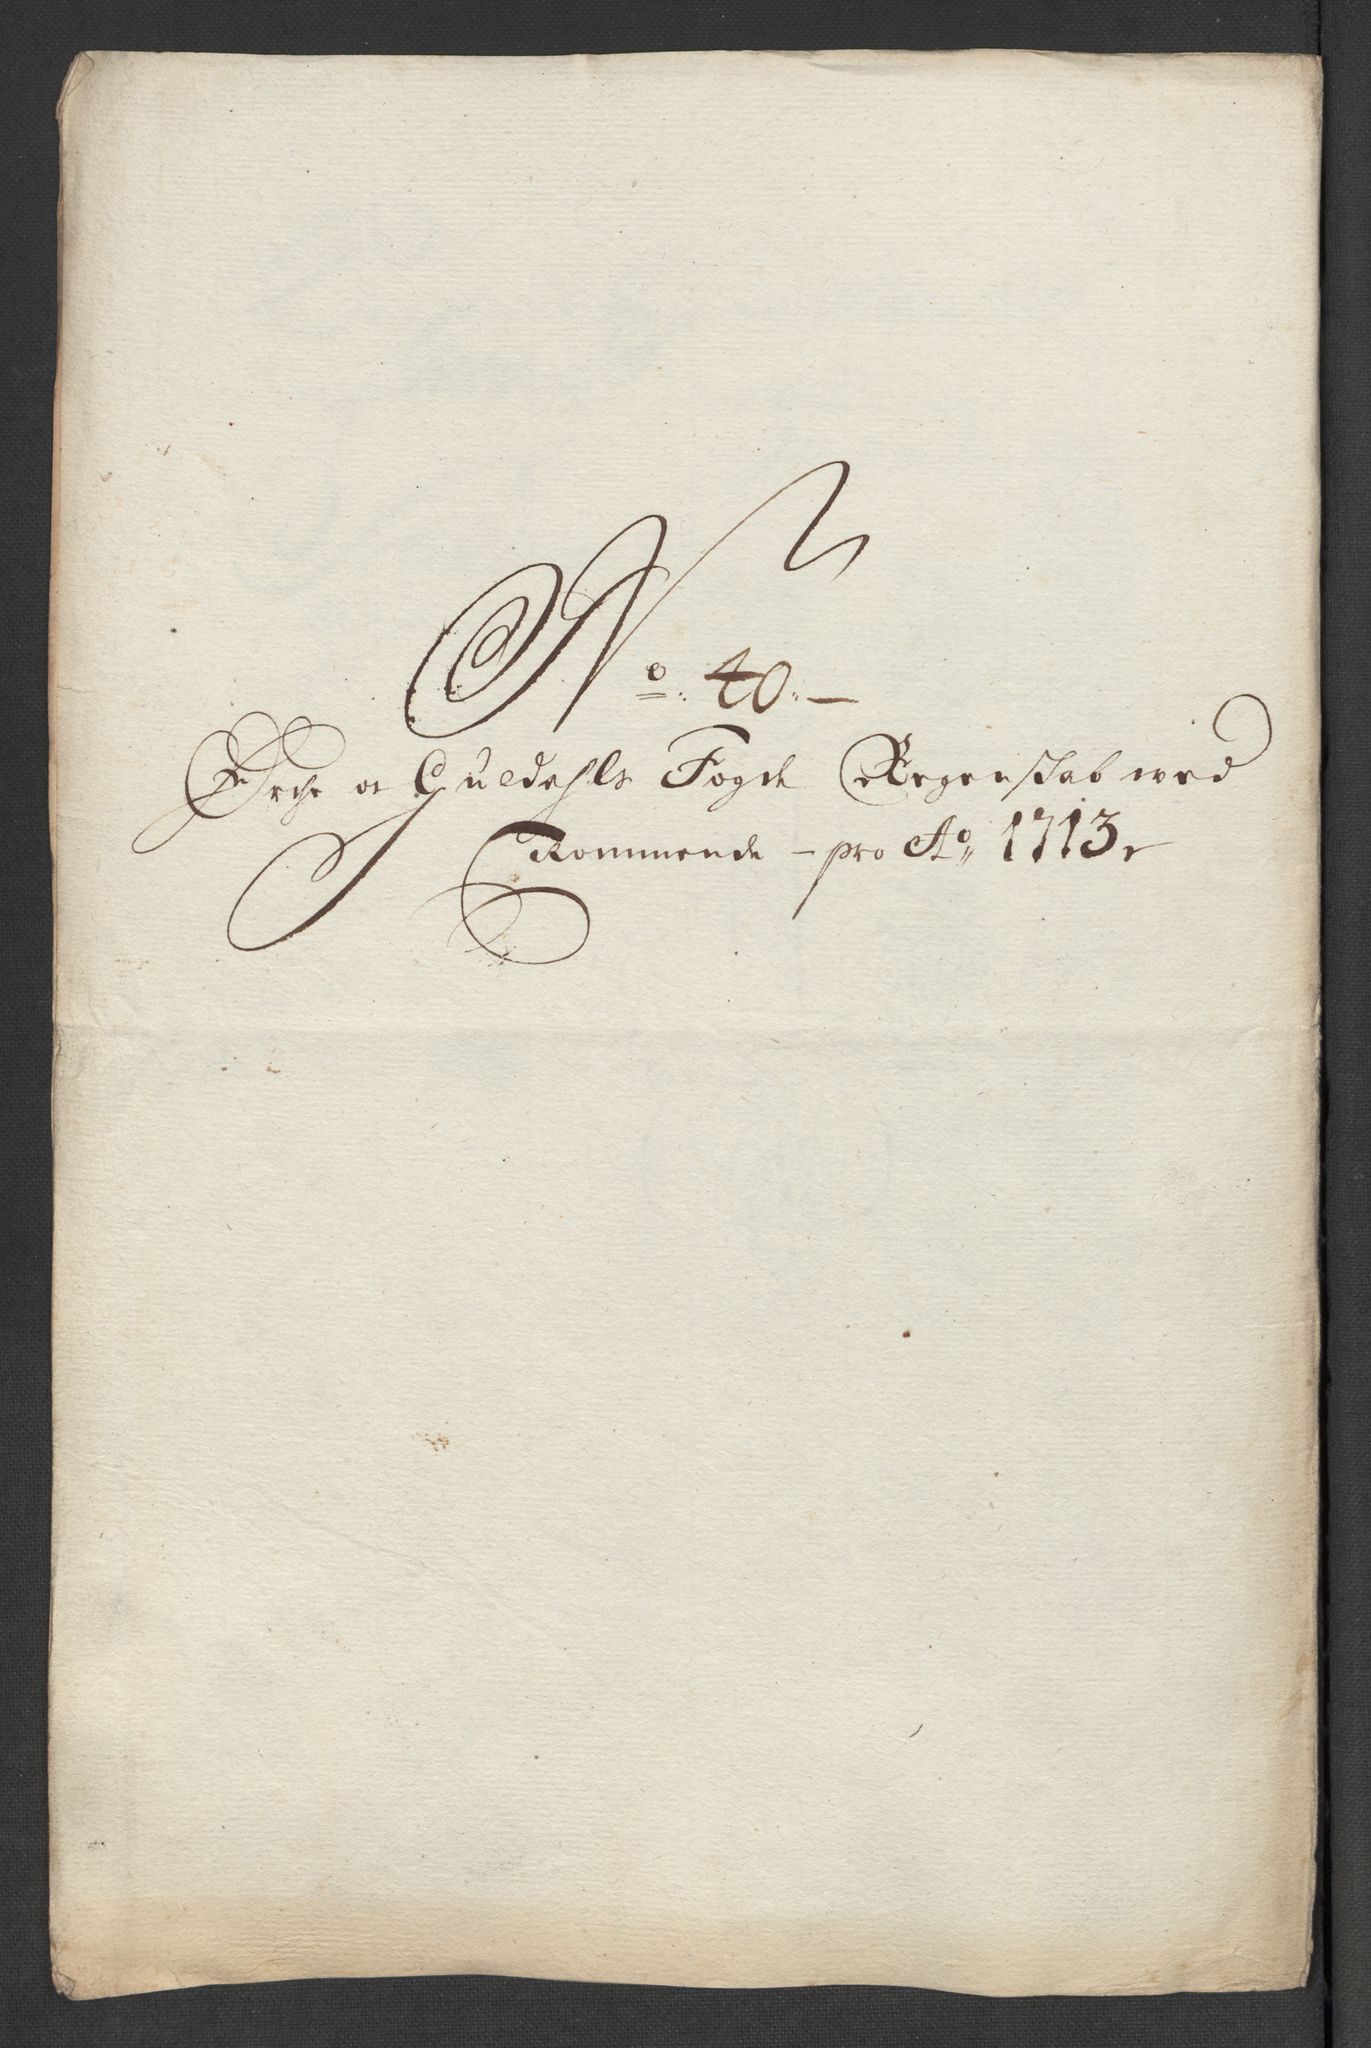 No: 40.—
Ørche og Guldahls Fogde Regenskab wed
Kommende – pro Ao, 1713,